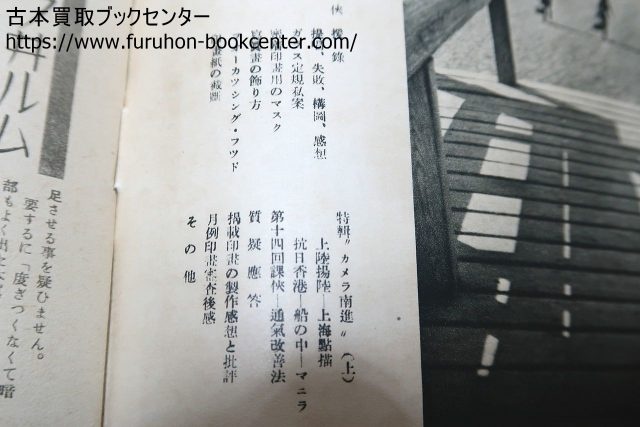 古本買取ブックセンター
https://www.furuhon-bookcenter.com/
撮影、失敗、構圖、感想
ガラス定規私案
印畫用のマスク
寫眞畫の飾り方
カツシング・フツド
畫紙の藏匣
特輯〃カメラ南進〃(上)
上陸揚陸―上海點描
抗日香港―船の中―マニラ
第十四回課俠―通氣改善法
質疑應答
揭載印畫の製作感想と批評
月例印畫審査後感
その他
ルム
足させる事を疑ひません。
要するに「度ぎつくなくて暗
部もよく出